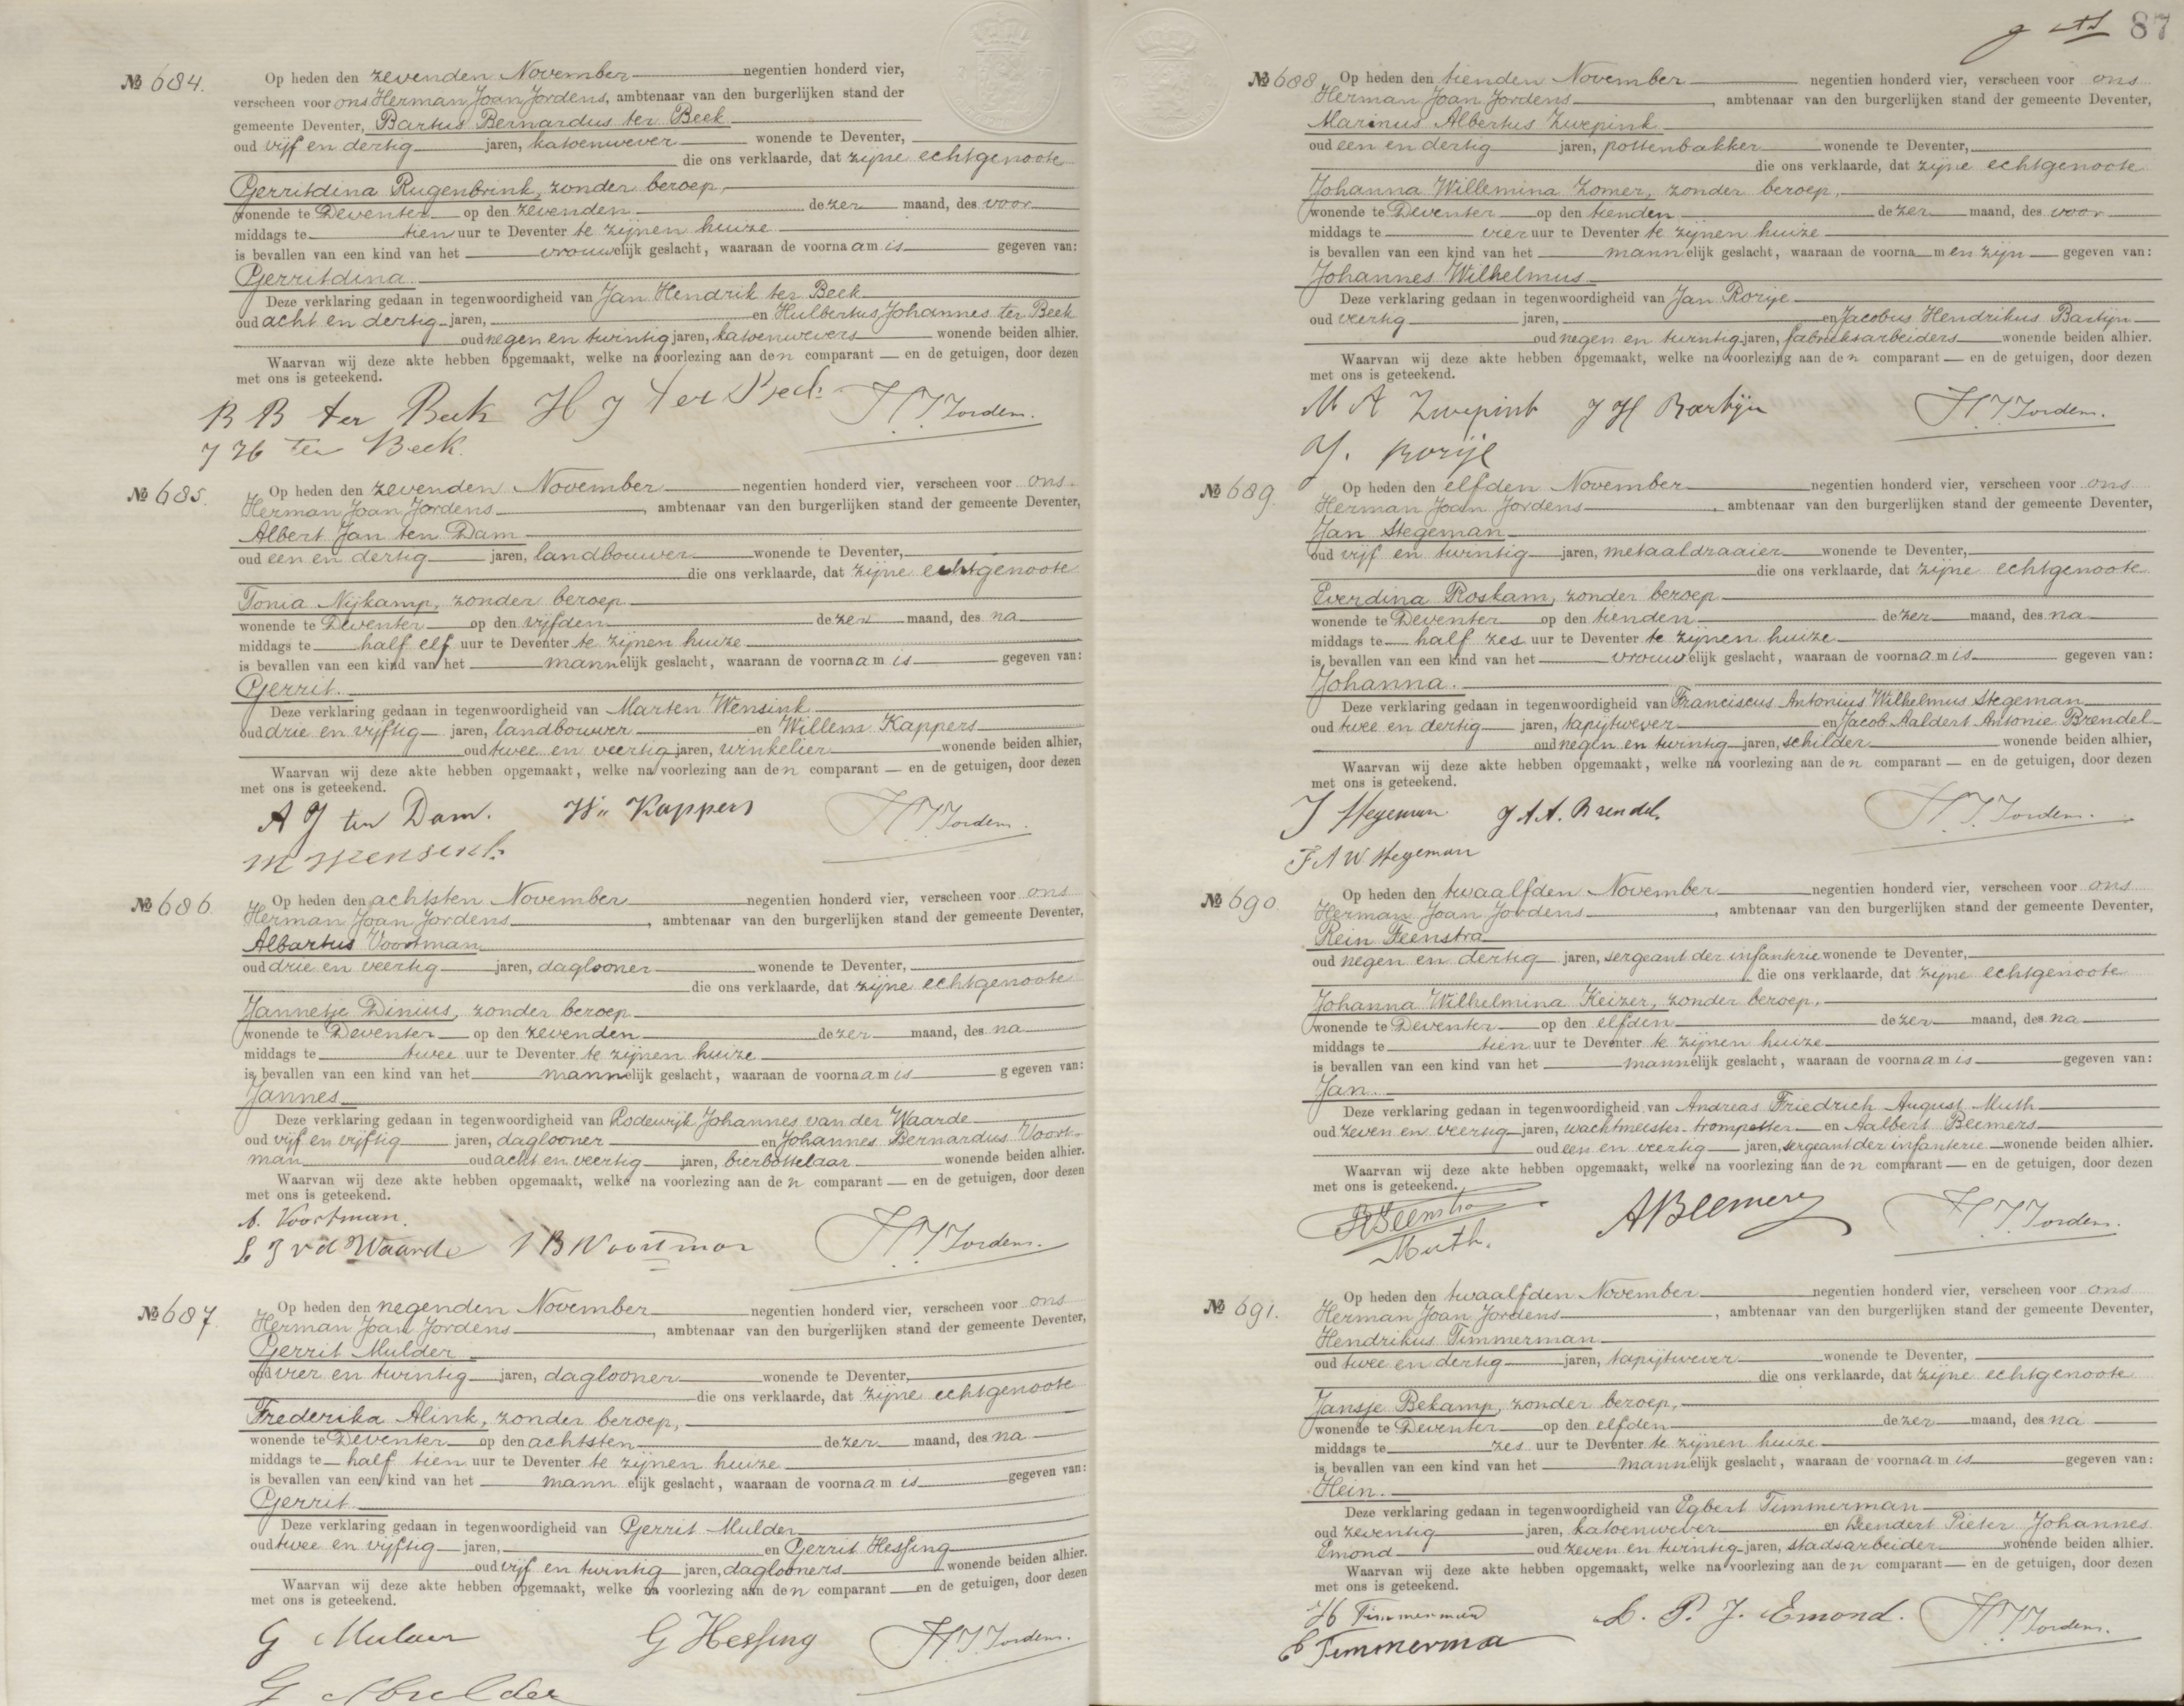 № 684. Op heden den zevenden November negentien honderd vier,
verscheen voor ons Herman Joan Jordens, ambtenaar van den burgerlijken stand der
gemeente Deventer, Bartus Bernardus ter Beek
oud vijf en dertig jaren, katoenwever wonende te Deventer,
die ons verklaarde, dat zijne echtgenoote
Gerritdina Rugenbrink, zonder beroep,
wonende te Deventer op den zevenden dezer maand, des voor
middags te tien uur te Deventer te zijnen huize
is bevallen van een kind van het vrouwelijk geslacht, waaraan de voornaam is gegeven van:
Gerritdina.
Deze verklaring gedaan in tegenwoordigheid van Jan Hendrik ter Beek
oud acht en dertig jaren, en Hulbertus Johannes ter Beek
oud negen en twintig jaren, katoenwevers wonende beiden alhier.
Waarvan wij deze akte hebben opgemaakt, welke na voorlezing aan den comparant en de getuigen, door dezen
met ons is geteekend.
B B ter Beek H J ter Beek H J Jordens.
J H ter Beek.
№ 685. Op heden den zevenden November negentien honderd vier, verscheen voor ons
Herman Joan Jordens, ambtenaar van den burgerlijken stand der gemeente Deventer,
Albert Jan ten Dam
oud een en dertig jaren, landbouwer wonende te Deventer,
die ons verklaarde, dat zijne echtgenoote
Tonia Nijkamp, zonder beroep
wonende te Deventer op den vijfden dezer maand, des na
middags te half elf uur te Deventer te zijnen huize
is bevallen van een kind van het mannelijk geslacht, waaraan de voornaam is gegeven van:
Gerrit.
Deze verklaring gedaan in tegenwoordigheid van Marten Wensink
oud drie en vijftig jaren, landbouwer en Willem Kappers
oud twee en veertig jaren, winkelier wonende beiden alhier,
Waarvan wij deze akte hebben opgemaakt, welke na voorlezing aan den comparant en de getuigen, door dezen
met ons is geteekend.
A J ten Dam. Wm Kappers H J Jordens.
M Wensink.
№ 686. Op heden den achtsten November negentien honderd vier, verscheen voor ons
Herman Joan Jordens, ambtenaar van den burgerlijken stand der gemeente Deventer,
Albartus Voortman
oud drie en veertig jaren, daglooner wonende te Deventer,
die ons verklaarde, dat zijne echtgenoote
Jannetje Dinius, zonder beroep
wonende te Deventer op den zevenden dezer maand, des na
middags te twee uur te Deventer te zijnen huize
is bevallen van een kind van het mannelijk geslacht, waaraan de voornaam is gegeven van:
Jannes
Deze verklaring gedaan in tegenwoordigheid van Lodewijk Johannes van der Waarde
oud vijf en vijftig jaren, daglooner en Johannes Bernardus Voort-
man oud acht en veertig jaren, bierbottelaar wonende beiden alhier.
Waarvan wij deze akte hebben opgemaakt, welke na voorlezing aan den comparant en de getuigen, door dezen
met ons is geteekend.
A. Voortman.
L J v d Waarde J B Voortman H J Jordens.
№ 687. Op heden den negenden November negentien honderd vier, verscheen voor ons
Herman Joan Jordens, ambtenaar van den burgerlijken stand der gemeente Deventer,
Gerrit Mulder
oud vier en twintig jaren, daglooner wonende te Deventer,
die ons verklaarde, dat zijne echtgenoote
Frederika Alink, zonder beroep,
wonende te Deventer op den achtsten dezer maand, des na
middags te half tien uur te Deventer te zijnen huize
is bevallen van een kind van het mannelijk geslacht, waaraan de voornaam is gegeven van:
Gerrit
Deze verklaring gedaan in tegenwoordigheid van Gerrit Mulder
oud twee en vijftig jaren, en Gerrit Hessing
oud vijf en twintig jaren, daglooners wonende beiden alhier.
Waarvan wij deze akte hebben opgemaakt, welke na voorlezing aan den comparant en de getuigen, door dezen
met ons is geteekend.
G Mulder G Hessing H J Jordens.
G Mulder
87
№ 688 Op heden den tienden November negentien honderd vier, verscheen voor ons
Herman Joan Jordens, ambtenaar van den burgerlijken stand der gemeente Deventer,
Marinus Albertus Zwepink
oud een en dertig jaren, pottenbakker wonende te Deventer,
die ons verklaarde, dat zijne echtgenoote
Johanna Willemina Zomer, zonder beroep,
wonende te Deventer op den tienden dezer maand, des voor
middags te vier uur te Deventer te zijnen huize
is bevallen van een kind van het mannelijk geslacht, waaraan de voornamen zijn gegeven van:
Johannes Wilhelmus
Deze verklaring gedaan in tegenwoordigheid van Jan Rorije
oud veertig jaren, en Jacobus Hendrikus Bartijn
oud negen en twintig jaren, fabrieksarbeiders wonende beiden alhier.
Waarvan wij deze akte hebben opgemaakt, welke na voorlezing aan den comparant en de getuigen, door dezen
met ons is geteekend.
M A Zwepink J H Bartijn H J Jordens.
J. Rorije
№ 689. Op heden den elfden November negentien honderd vier, verscheen voor ons
Herman Joan Jordens, ambtenaar van den burgerlijken stand der gemeente Deventer,
Jan Stegeman
oud vijf en twintig jaren, metaaldraaier wonende te Deventer,
die ons verklaarde, dat zijne echtgenoote
Everdina Roskam, zonder beroep
wonende te Deventer op den tienden dezer maand, des na
middags te half zes uur te Deventer te zijnen huize
is bevallen van een kind van het vrouwelijk geslacht, waaraan de voornaam is gegeven van:
Johanna.
Deze verklaring gedaan in tegenwoordigheid van Franciscus Antonius Wilhelmus Stegeman
oud twee en dertig jaren, tapijtwever en Jacob Aaldert Antonie Brendel
oud negen en twintig jaren, schilder wonende beiden alhier,
Waarvan wij deze akte hebben opgemaakt, welke na voorlezing aan den comparant en de getuigen, door dezen
met ons is geteekend.
J Stegeman J A A. Brendel. H J Jordens.
F A W Stegeman
№ 690. Op heden den twaalfden November negentien honderd vier, verscheen voor ons
Herman Joan Jordens, ambtenaar van den burgerlijken stand der gemeente Deventer,
Rein Feenstra
oud negen en dertig jaren, sergeant der infanterie wonende te Deventer,
die ons verklaarde, dat zijne echtgenoote
Johanna Wilhelmina Keizer, zonder beroep,
wonende te Deventer op den elfden dezer maand, des na
middags te tien uur te Deventer te zijnen huize
is bevallen van een kind van het mannelijk geslacht, waaraan de voornaam is gegeven van:
Jan.
Deze verklaring gedaan in tegenwoordigheid van Andreas Friedrich August Muth
oud zeven en veertig jaren, wachtmeester-trompetter en Aalbert Beemers
oud een en veertig jaren, sergeant der infanterie wonende beiden alhier.
Waarvan wij deze akte hebben opgemaakt, welke na voorlezing aan den comparant en de getuigen, door dezen
met ons is geteekend.
R Feenstra A Beemers H J Jordens.
Muth.
№ 691. Op heden den twaalfden November negentien honderd vier, verscheen voor ons
Herman Joan Jordens, ambtenaar van den burgerlijken stand der gemeente Deventer,
Hendrikus Timmerman
oud twee en dertig jaren, tapijtwever wonende te Deventer,
die ons verklaarde, dat zijne echtgenoote
Jansje Bekamp, zonder beroep,
wonende te Deventer op den elfden dezer maand, des na
middags te zes uur te Deventer te zijnen huize
is bevallen van een kind van het mannelijk geslacht, waaraan de voornaam is gegeven van:
Hein.
Deze verklaring gedaan in tegenwoordigheid van Egbert Timmerman
oud zeventig jaren, katoenwever en Leendert Pieter Johannes
Emond oud zeven en twintig jaren, stadsarbeider wonende beiden alhier.
Waarvan wij deze akte hebben opgemaakt, welke na voorlezing aan den comparant en de getuigen, door dezen
met ons is geteekend.
H Timmerman L. P. J. Emond. H J Jordens.
E Timmerma